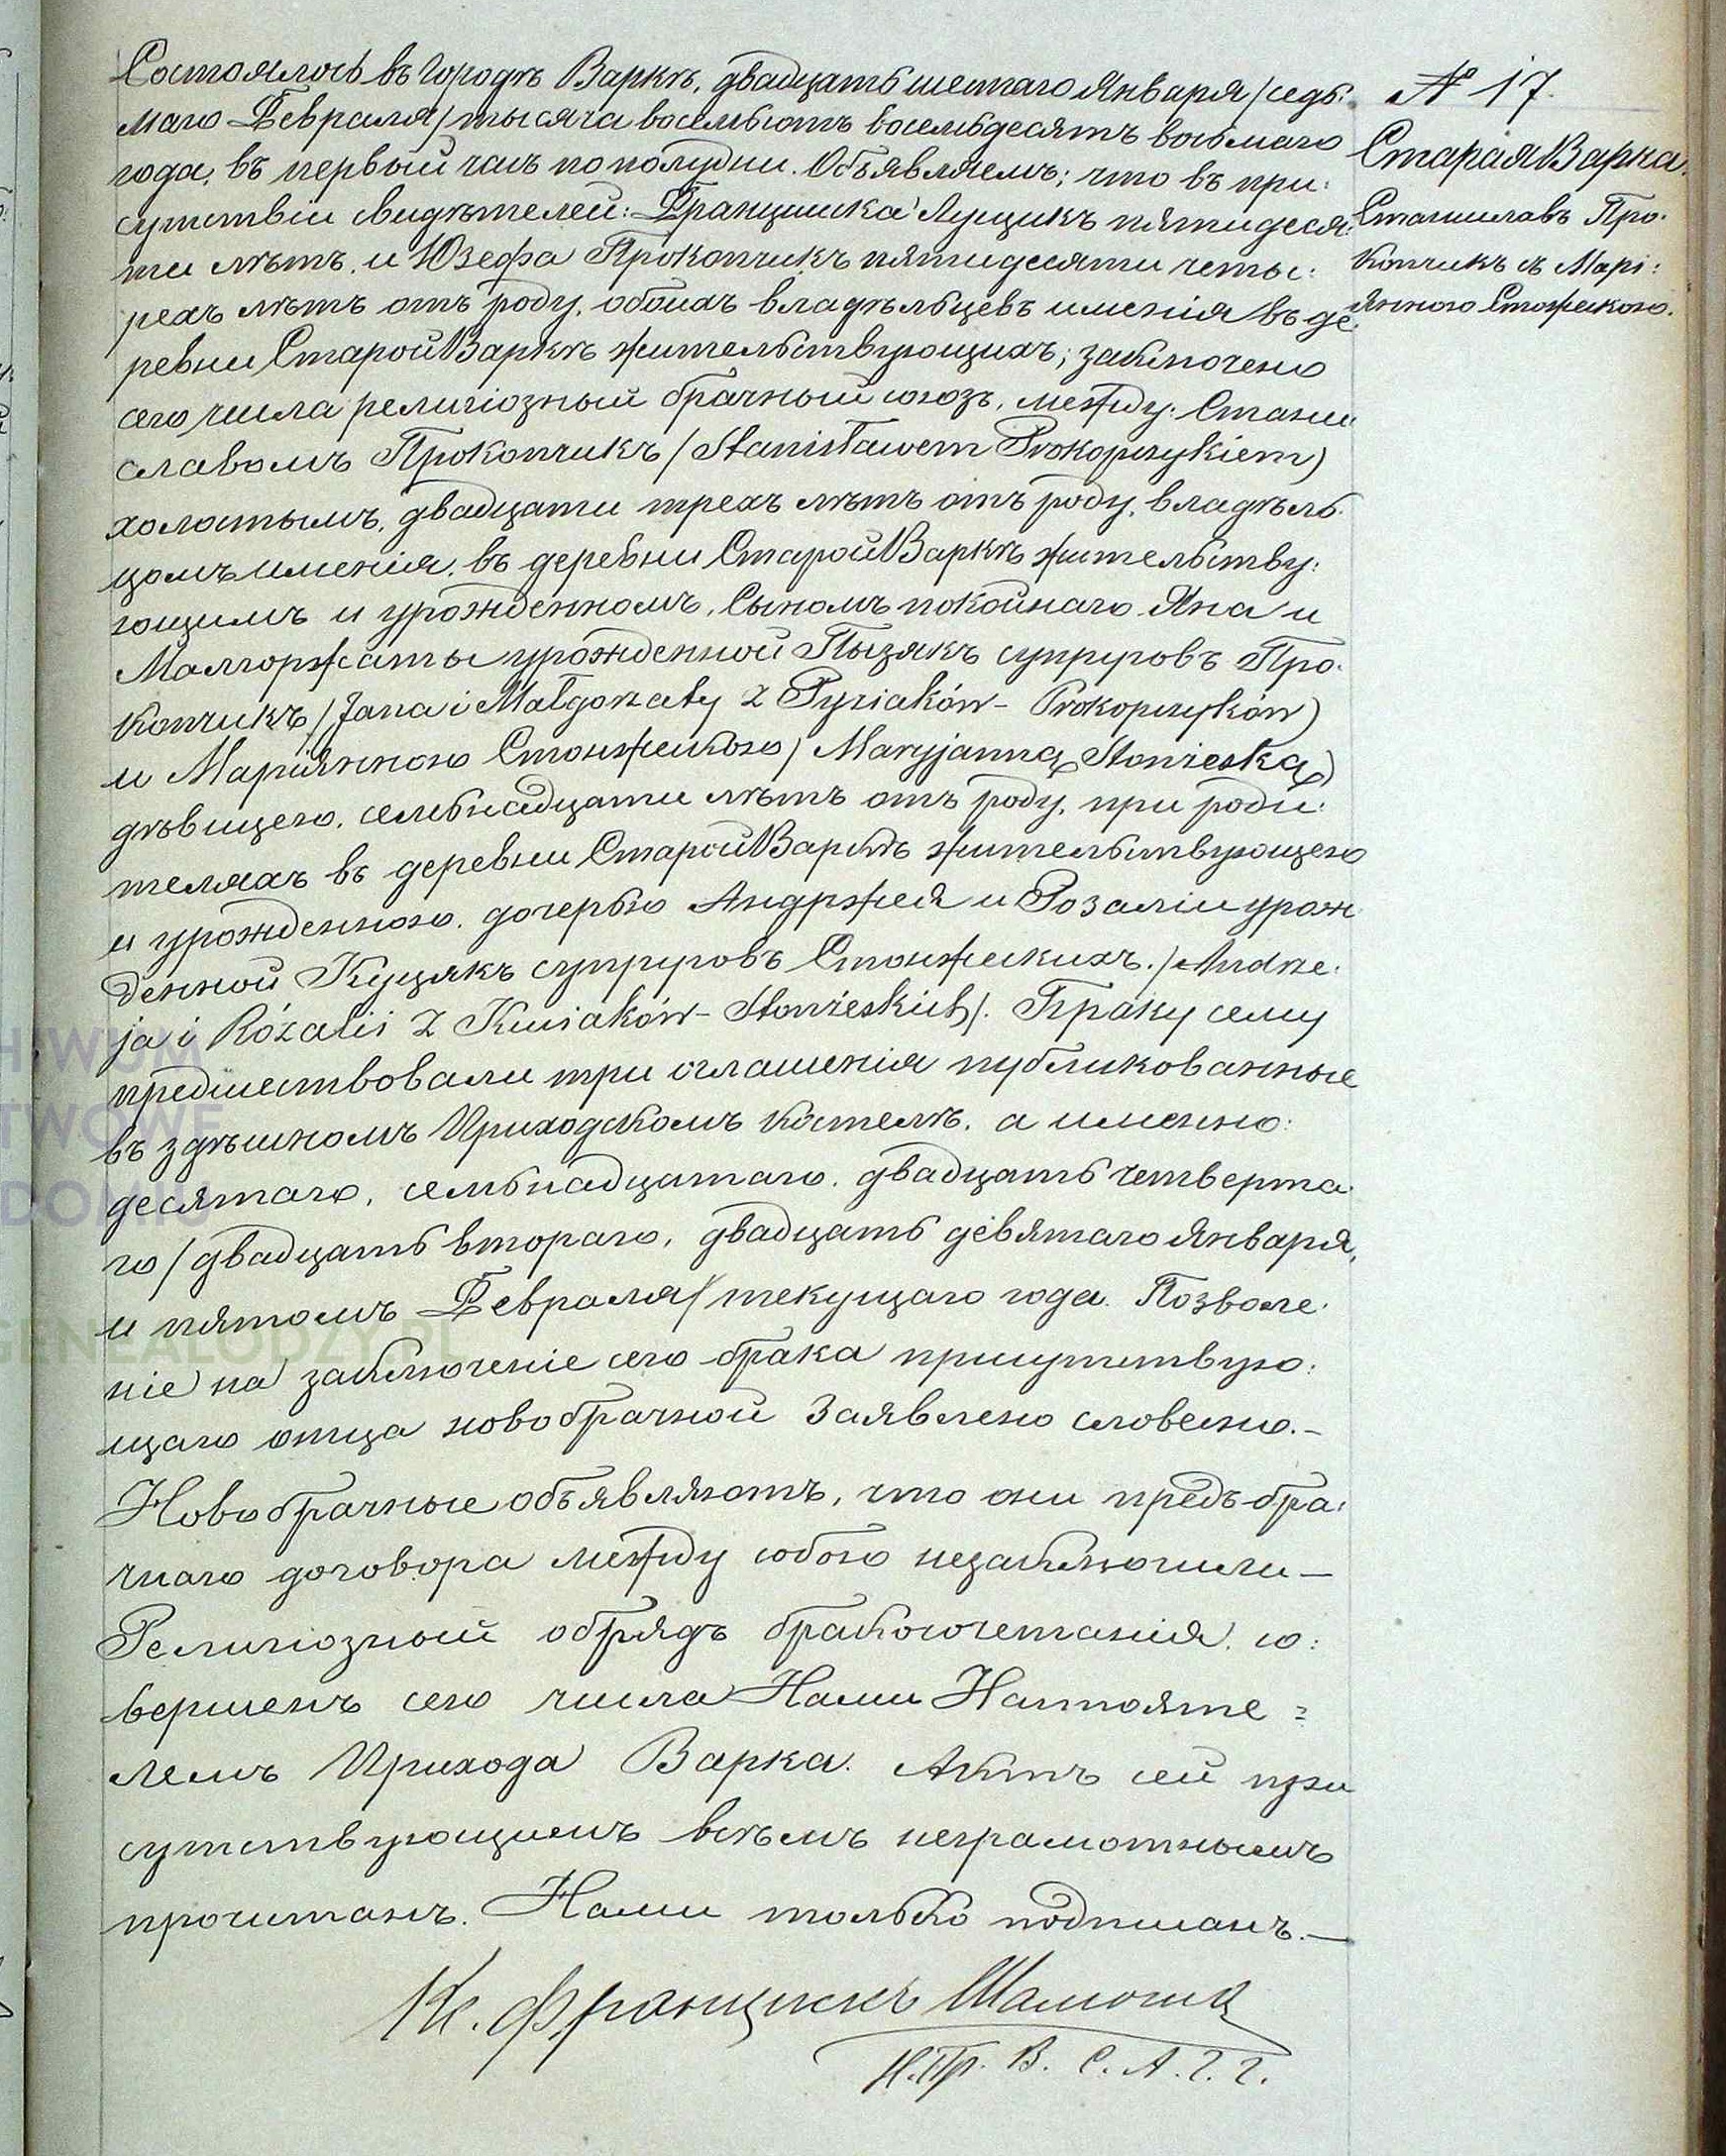 Состоялось въ Городѣ Варкѣ, двадцать шестаго Января /седь:
маго Февраля/ тысяча восемьсотъ восемьдесятъ восьмаго
года, въ первый часъ по полудни. Объявляемъ; что въ при:
сутствіи свидѣтелей: Францишка Лущикъ пятидеся:
ти лѣтъ, и Юзефа Прокопчикъ пятидесяти четы:
рехъ лѣтъ отъ роду, обоихъ владѣльцевъ именія въ де:
ревни Старой Варкѣ жительствующихъ; заключено
сего числа религіозный брачный союзъ, между: Стани:
славомъ Прокопчикъ /Stanisławem Prokopczykiem)
холостымъ, двадцати трехъ лѣтъ отъ роду, владѣль:
цомъ именія, въ деревни Старой Варкѣ жительству:
ющимъ и урожденномъ, сыномъ покойнаго Яна и
Малгоржаты урожденной Пызякъ супруговъ Про:
копчикъ /Jana i Małgorzaty z Pyziaków - Prokopczyków)
и Маріянною Стонжескою / Maryjanną Stonzeską)
дѣвицею, семьнадцати лѣтъ отъ роду, при роди:
теляхъ въ деревни Старой Варкѣ жительствующею
и урожденною, дочерью Андржея и Розаліи урож
денной Куцякъ супруговъ Стонжескихъ. /Andrze:
ja i Rózalii z Kuciaków - Stonżeskich/. Браку сему
предшествовали три оглашенія публикованные
въ здѣшномъ Приходскомъ костелѣ, а именно:
десятаго, семьнадцатаго, двадцать четверта:
го /двадцать втораго, двадцать девятаго Января,
и пятомъ Февраля/ текущаго года. Позволе:
ніе на заключеніе сего брака присутствую:
щаго отца новобрачной заявлено словесно.-
Новобрачные объявляютъ, что они предъ бра:
чнаго договора между собою незаключили -
Религіозный обрядъ бракосочетанія, со:
вершенъ сего числа Нами Настояте =
лемъ Прихода Варка. Актъ сей при
сутствующимъ всѣмъ неграмотнымъ
прочитанъ. Нами только подписанъ.-
Кс. Францискъ
Н. Пр. В. С. А. Г. Г.
№ 17.
Старая Варка.
Станиславъ Про:
копчикъ съ Марі:
янною Стонжескою.
ARCHIWUM
PAŃSTWOWE
W RADOMIU
GENEALODZY.PL